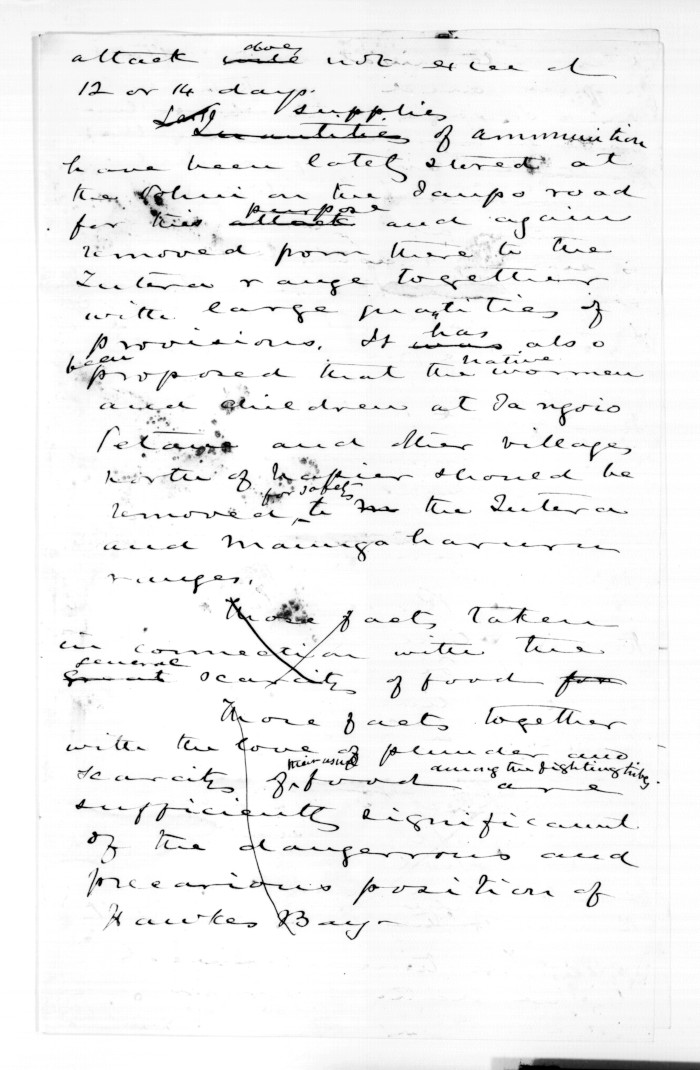 attack ~~will~~ does not exceed
12 or 14 days.
Large ~~Quantities~~ supplies of ammunition
have been lately stored at
the Pohui on the Taupo road
for this ~~attack~~ purpose and again
removed from there to the
Titera range together
with large quantities of
provisions. It ~~was~~ has also
been proposed that the native women
and children at Tangoio
Petane and other villages
north of Napier should be
removed for safety to the Titera
and Maungaharuru
ranges.
Those facts taken
in connection with the
~~great~~ general scarcity of food ~~for~~
Those facts together
with the love of plunder and
scarcity of their usual food among the fighting tribes are
sufficiently significant
of the dangerous and
precarious position of
Hawkes Bay-